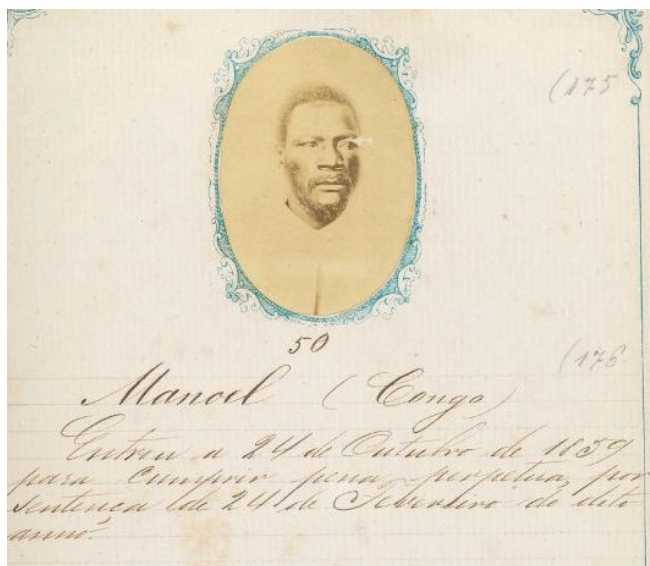 (175
50
(176
Manoel (Congo)
Entrou a 24 de Outubro de 1859
para cumprir pena perpetua, por
sentença de 24 de Fevereiro do dito
anno.